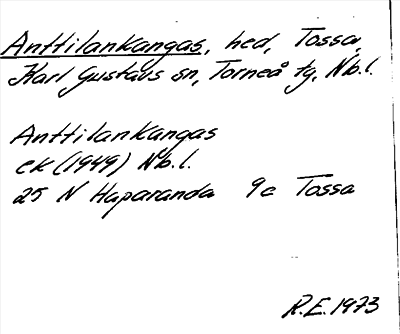 Anttilankangas, hed, Tossa,
Karl Gustavs sn, Torneå tg, Nb.l.
Anttilankangas
ek (1949) Nb.l.
25 N Haparanda 9c Tossa
R.E. 1973